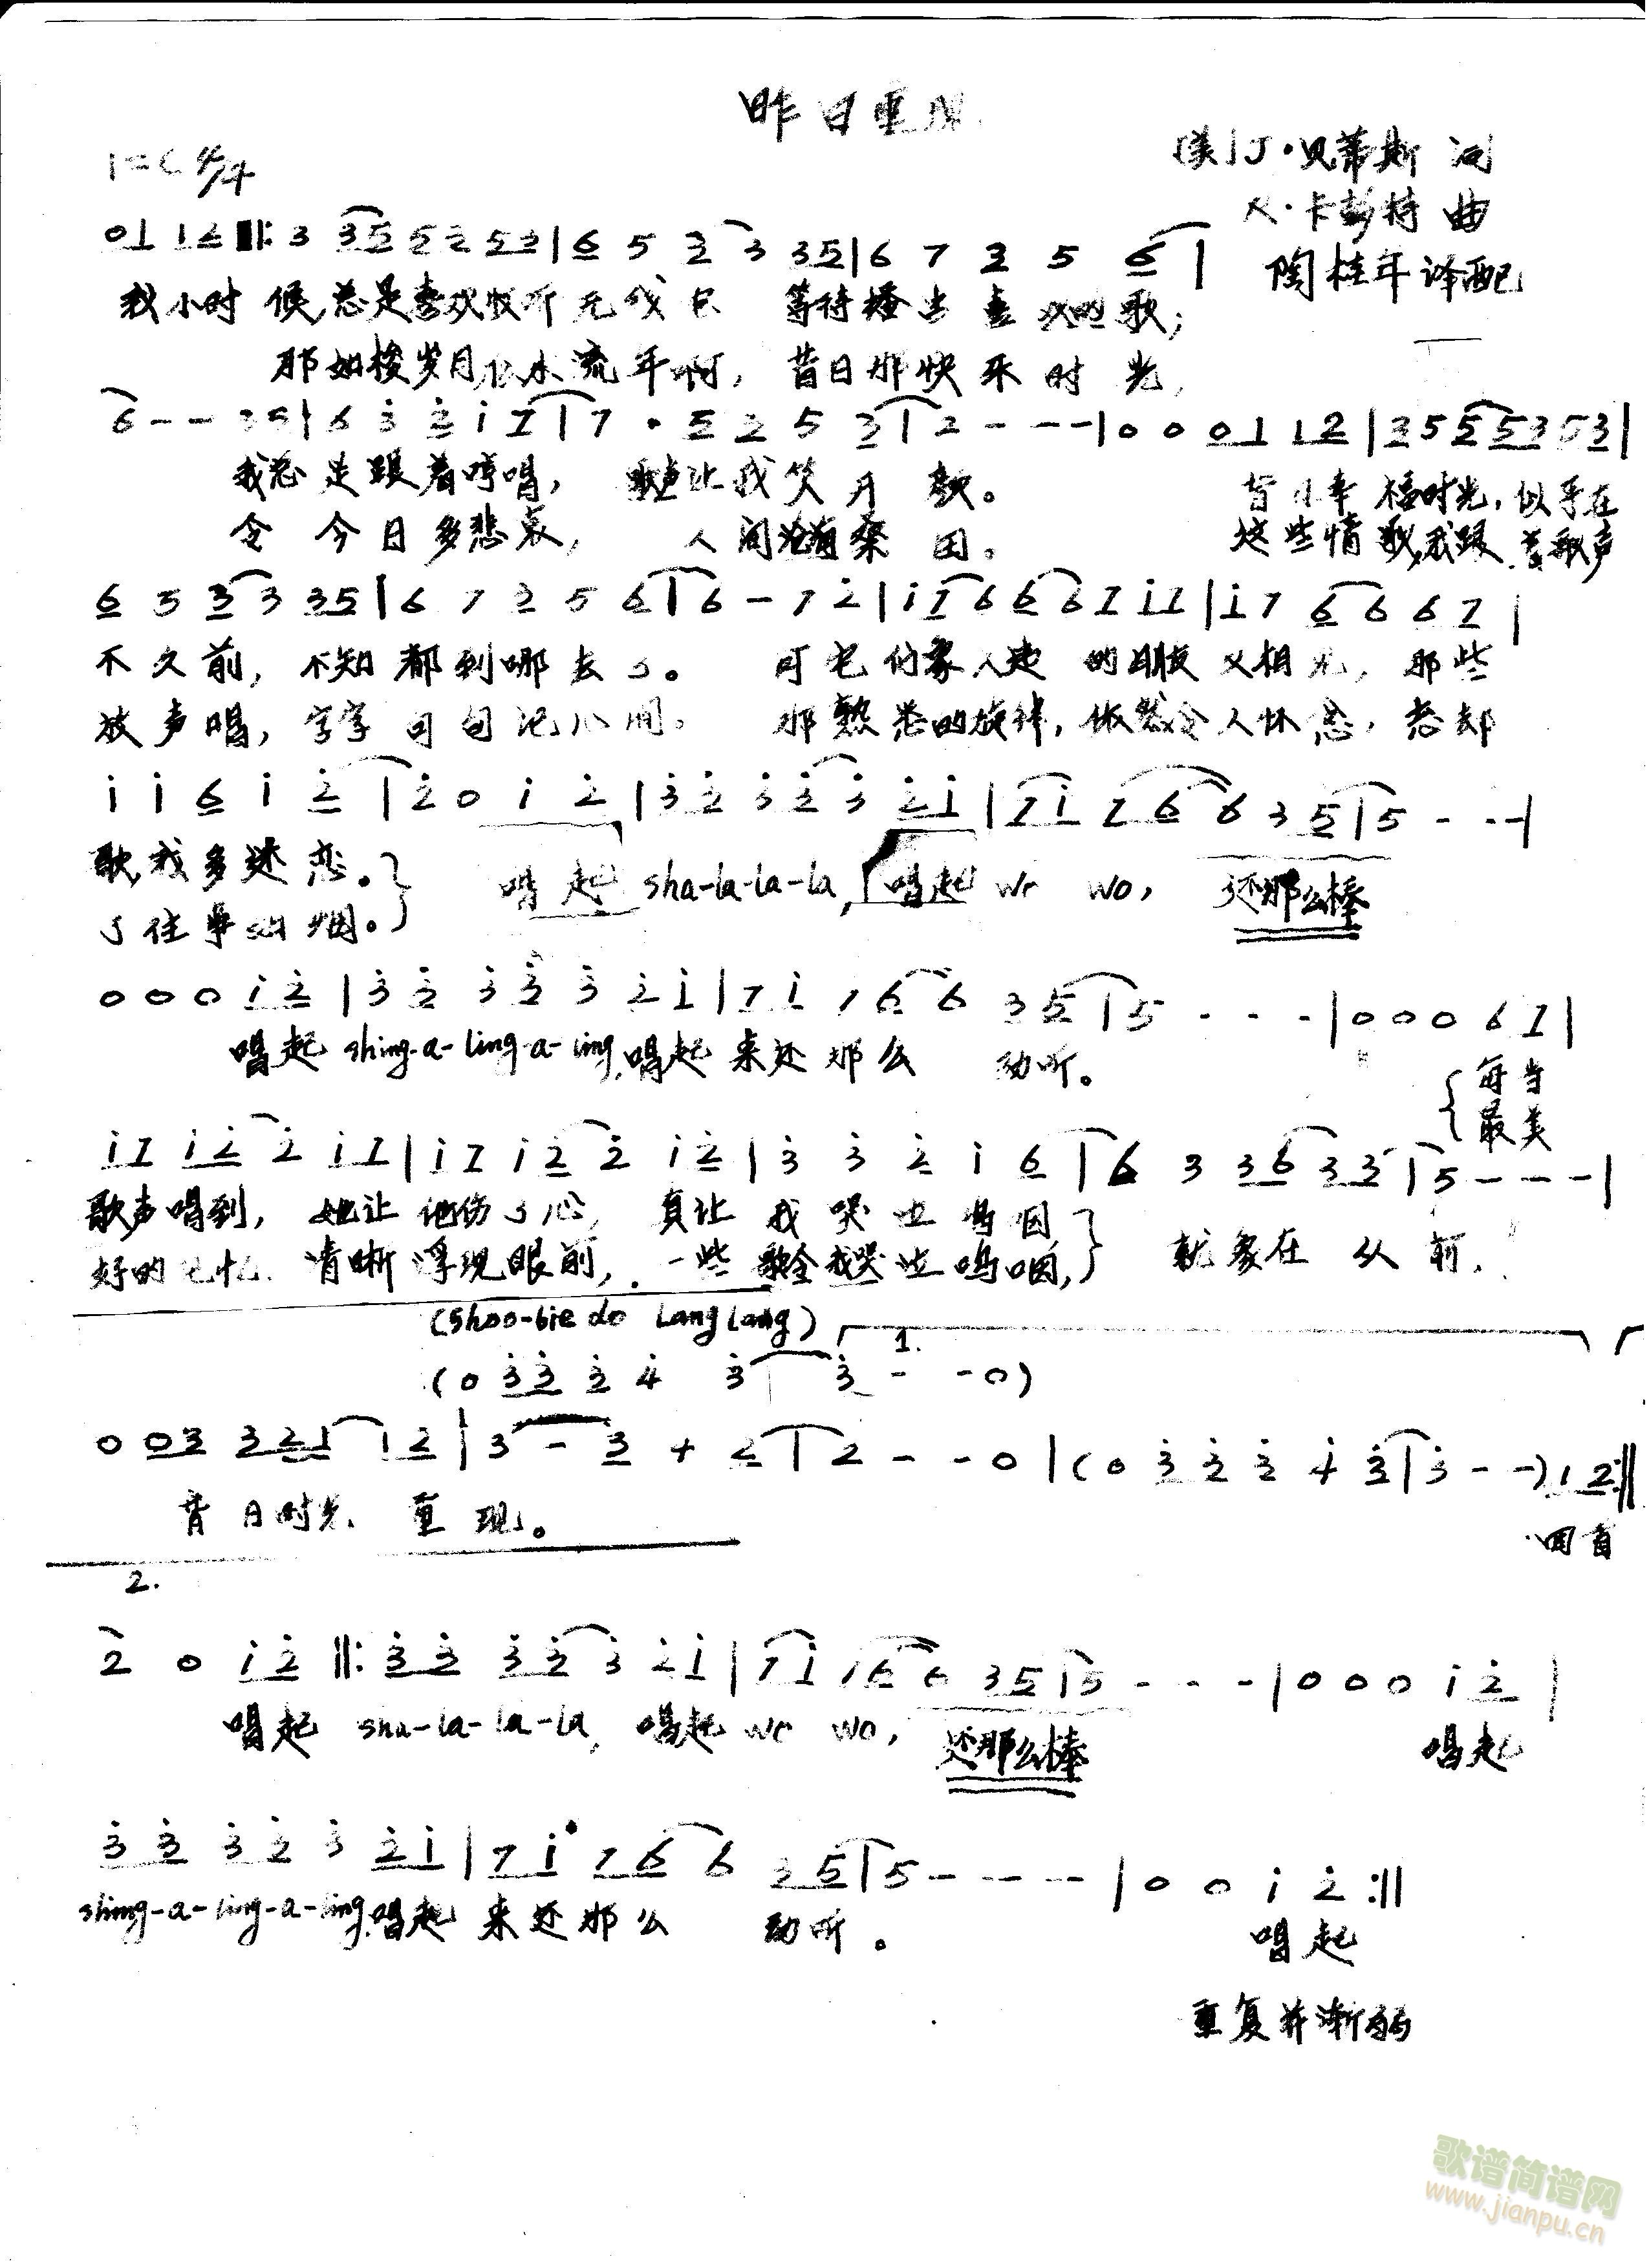 昨日重现
1=C 4/4
[美]J·贝蒂斯 词
R·卡彭特 曲
陶桂年译配
01 12 ‖: 3 35 5253 | 6 5 3 3 35 | 6 7 2 5 6 |
我小时 候,总是喜欢收听无线电 等待播出喜欢的歌;
那如梭岁月,似水流年啊, 昔日那快乐时光,
6 - - 35 | 6 3 2 1 7 | 7 · 5 2 5 3 | 2 - - - | 0 0 01 12 | 3 5 5 5353 |
我总是跟着哼唱, 歌声让我笑开颜。 昔日幸福时光,似乎在
令今日多悲哀, 人间沧海桑田。 这些情歌,我跟着歌声
6 5 3 3 35 | 6 7 2 5 6 | 6 - 7 2 | 1 7 6 6 6 7 1 7 | 1 7 6 6 6 7 |
不久前, 不知都到哪去了。 可它们象久违的朋友又相见, 那些
放声唱, 字字句句记心间。 那熟悉的旋律, 依然令人怀念, 忘却
1 1 6 1 2 | 2 0 1 2 | 3 2 3 2 3 2 1 | 7 1 7 6 6 3 5 | 5 - - - |
歌,我多迷恋。 唱起 sha-la-la-la, 唱起 wo wo, 还那么棒
了往事如烟。
0 0 0 1 2 | 3 2 3 3 3 2 1 | 7 1 7 6 6 3 5 | 5 - - - | 0 0 0 6 7 |
唱起 shing-a-ling-a-ling, 唱起来还那么 动听。 每当
最美
1 7 1 2 2 1 7 | 1 7 1 2 2 1 2 | 3 3 2 1 6 | 6 3 3 6 3 3 | 5 - - - |
歌声唱到, 她让他伤了心, 真让我哭泣呜咽
好的记忆 清晰浮现眼前, 一些歌令我哭泣呜咽, 就象在从前,
(shoo-bie do Lang Lang) 1.
(0 3 3 2 4 3 3 - - 0)
0 0 3 3 2 1 1 2 | 3 - 3 4 2 | 2 - - 0 | (0 3 2 2 4 3 | 3 - -) 1 2 :‖
昔日时光, 重现。 回首
2.
2 0 1 2 ‖: 3 3 3 2 3 2 1 | 7 1 1 6 6 3 5 | 5 - - - | 0 0 0 1 2 |
唱起 sha-la-la-la, 唱起 wo wo, 还那么棒 唱起
3 3 3 2 3 2 1 | 7 1 7 6 6 3 5 | 5 - - - | 0 0 1 2 :‖
shing-a-ling-a-ling, 唱起来还那么 动听。 唱起
重复并渐弱
歌谱简谱网
www.jianpu.cn